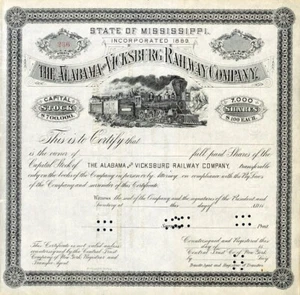 STATE OF MISSISSIPPI.
INCORPORATED 1889.
THE ALABAMA AND VICKSBURG RAILWAY COMPANY.
CAPITAL STOCK $700,000.
7,000 SHARES $100 EACH.
This is to Certify that
is the owner of full paid Shares of the
Capital Stock of THE ALABAMA AND VICKSBURG RAILWAY COMPANY, Transferable
only on the books of the Company in person or by Attorney in compliance with the By-laws
of the Company and surrender of this Certificate.
Witness the seal of the Company and the signatures of the President and
Secretary at this day of
Pres't
This Certificate is not valid unless
countersigned by the Central Trust
Company of New York, Registrar and
Transfer Agent.
Countersigned and Registered this
day of
Central Trust
By